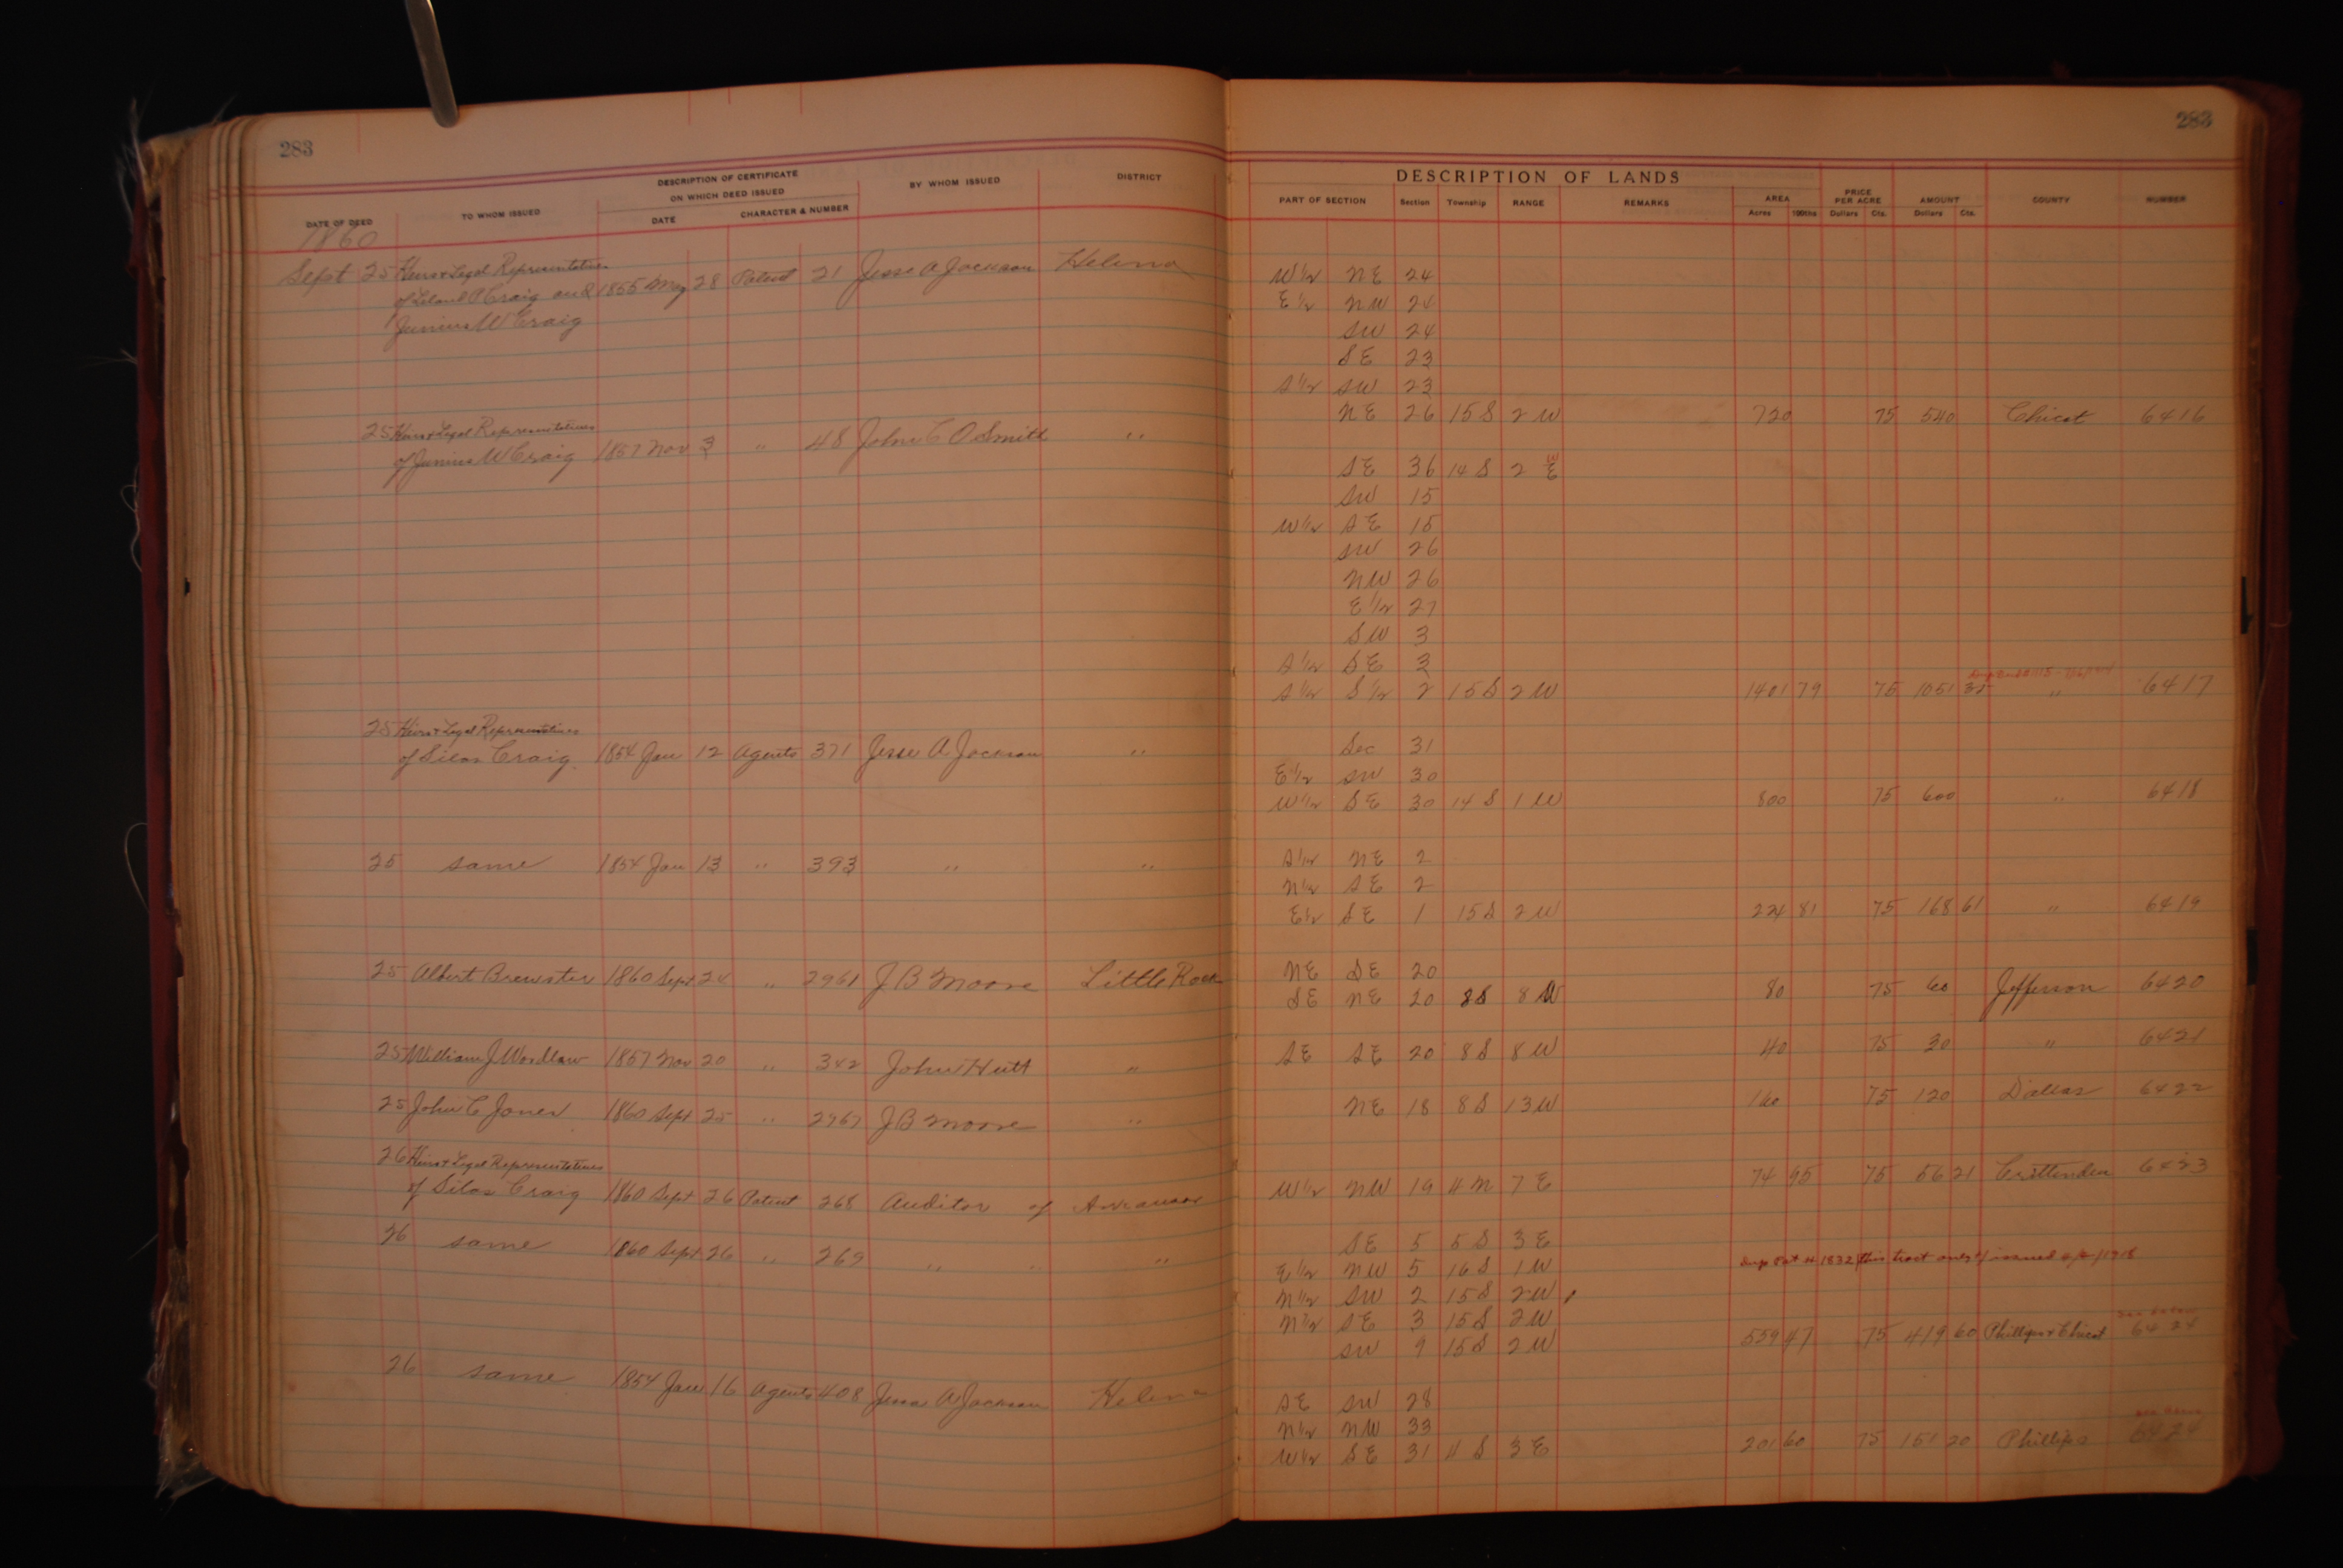 283
DATE OF DEED TO WHOM ISSUED DESCRIPTION OF CERTIFICATE ON WHICH DEED ISSUED DATE CHARACTER & NUMBER BY WHOM ISSUED DISTRICT
1860
Sept 25 Heirs & Legal Representatives
of Leland P Craig and 1855 May 28 Patent 21 Jesse A Jackson Helena
Junius W Craig
25 Heirs & Legal Representatives
of Junius W Craig 1857 Nov 3 " 48 John C O Smith "
25 Heirs & Legal Representatives
of Silas Craig 1854 Jan 12 Agents 371 Jesse A Jackson "
25 same 1854 Jan 13 " 393 " "
25 Albert Brewster 1860 Sept 24 " 2961 J B Moore Little Rock
25 William J Wordlaw 1857 Nov 20 " 342 John Hutt "
25 John C Jones 1860 Sept 25 " 2967 J B Moore "
26 Heirs & Legal Representatives
of Silas Craig 1860 Sept 26 Patent 268 Auditor of Arkansas
26 same 1860 Sept 26 " 269 " " "
26 same 1854 Jan 16 Agents 408 Jesse A Jackson Helena
283
DESCRIPTION OF LANDS
PART OF SECTION Section Township RANGE REMARKS AREA Acres 100ths PRICE PER ACRE Dollars Cts. AMOUNT Dollars Cts. COUNTY NUMBER
W 1/2 NE 24
E 1/2 NW 24
SW 24
SE 23
S 1/2 SW 23
NE 26 15 S 2 W 720 75 540 Chicot 6416
SE 36 14 S 2 W E
SW 15
W 1/2 SE 15
SW 26
NW 26
E 1/2 27
SW 3
S 1/2 SE 3
S 1/2 S 1/2 2 15 S 2 W 1401 79 75 1051 35 " 6417
Sec 31
E 1/2 SW 30
W 1/2 SE 30 14 S 1 W 800 75 600 " 6418
S 1/2 NE 2
N 1/2 SE 2
E 1/2 SE 1 15 S 2 W 224 81 75 168 61 " 6419
NE SE 20
SE NE 20 8 S 8 W 80 75 60 Jefferson 6420
SE SE 20 8 S 8 W 40 75 30 " 6421
NE 18 8 S 13 W 160 75 120 Dallas 6422
W 1/2 NW 19 4 N 7 E 74 95 75 56 21 Crittenden 6423
SE 5 5 S 3 E
E 1/2 NW 5 16 S 1 W Pat # 1832 (this tract only) issued
N 1/2 SW 2 15 S 2 W
N 1/2 SE 3 15 S 2 W
SW 9 15 S 2 W 559 47 75 419 60 Phillips & Chicot 6424
SE SW 28
N 1/2 NW 33
W 1/2 SE 31 4 S 3 E 201 60 75 151 20 Phillips 6424